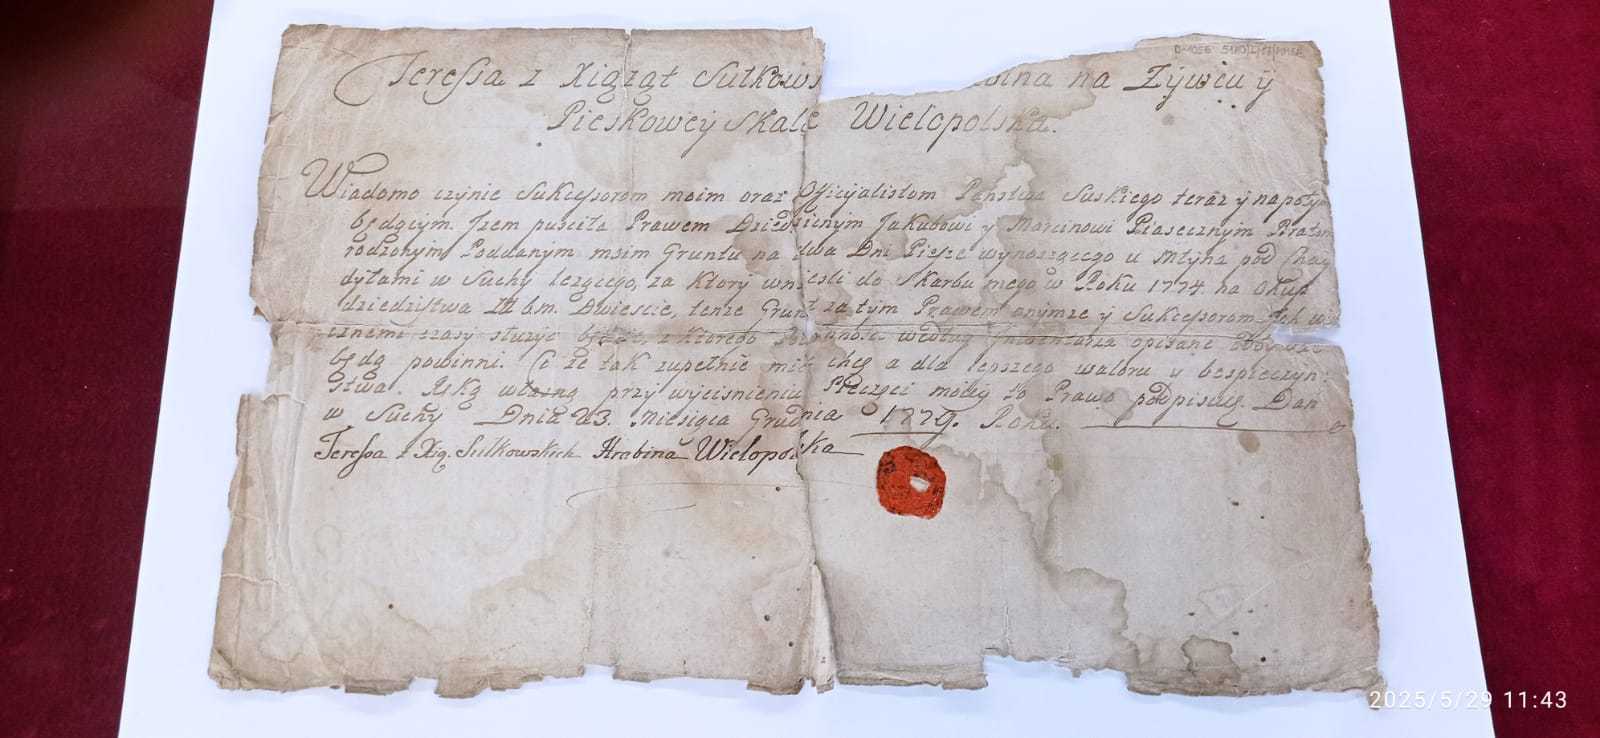 D-1056
Teressa z Xiążąt Sułkows bina na Zywcu ÿ
Pieskoweÿ Skale Wielopolska.
Wiadomo czynie Sukcessorom moim oraz Officyalistom Państwa Suskiego teraz ÿ napoty
będącym. Izem puściła Prawem Dziedzicnym Jakubowi y Marcinowi Piasecznym Bratom
rodzonym Poddanym moim Gruntu na dwa Dni Piesze wynoszącego u Młyna pod
dyłami w Suchy lezącego, za ktory wnieśli do Skarbu mego w Roku 1774. na Okup
dziedzistwa Dwiescie, tenze Grunt za tym Prawem onymze ÿ Sukcessorom Jch wi
cznemi czasy słuzyc będzie, z ktorego według Jnwentarza opisane
będą powinni. Co ze tak zupełnie mieć chcę a dla lepszego waloru y bespieczyn:
stwa. Ręką własną przy wyciśnieniu Pieczęci moieÿ to Prawo podpisuię. Dan
w Suchy Dnia 23. Miesiąca Grudnia 1779. Roku.
Teressa z Xią. Sułkowskich Hrabina Wielopolska
2025/5/29 11:43